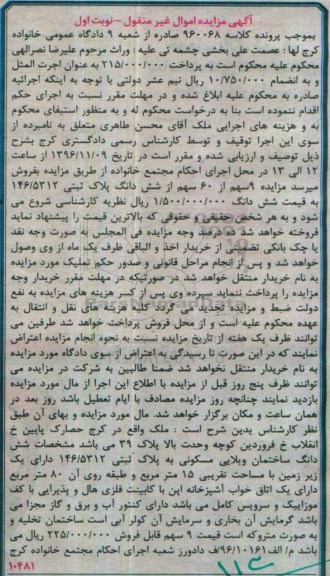 آگهی مزایده اموال غیر منقول –نوبت اول
بموجب پرونده کلاسه ۹۶۰۰۶۸ صادره از شعبه ۹ دادگاه عمومی خانواده
کرج لها : عصمت علی بخشی چشمه تی علیه : وراث مرحوم علیرضا نصرالهی
محکوم علیه محکوم است به پرداخت ۲۱۵/۰۰۰/۰۰۰ به عنوان اجرت المثل
و به انضمام ۱۰/۷۵۰/۰۰۰ ریال نیم عشر دولتی با توجه به اینکه اجرائیه
صادره به محکوم علیه ابلاغ شده و در مهلت مقرر نسبت به اجرای حکم
اقدام ننموده است بنا به درخواست محکوم له و به منظور استیفای محکوم
به و هزینه های اجرایی ملک آقای محسن طاهری متعلق به نامبرده از
سوی این اجرا توقیف و توسط کارشناس رسمی دادگستری کرج بشرح
ذیل توصیف و ارزیابی شده و مقرر است در تاریخ ۱۳۹۶/۱۱/۰۹ از ساعت
۱۲ الی ۱۳ در محل اجرای احکام مجتمع خانواده از طریق مزایده بفروش
میرسد مزایده ۹سهم از ۶۰ سهم از شش دانگ پلاک ثبتی ۱۴۶/۵۳۱۲
به قیمت شش دانگ ۱/۵۰۰/۰۰۰/۰۰۰ ریال نظریه کارشناسی شروع می
شود و به هر شخص حقیقی و حقوقی که بالاترین قیمت را پیشنهاد نماید
فروخته خواهد شد ۱۰ درصد وجه مزایده فی المجلس به صورت وجه نقد
یا چک بانکی تضمینی از خریدار اخذ و الباقی ظرف یک ماه از وی وصول
خواهد شد و پس از انجام مراحل قانونی و صدور حکم تملیک مورد مزایده
به نام خریدار منتقل خواهد شد در صورتیکه در مهلت مقرر خریدار وجه
مزایده را پرداخت ننماید سپرده وی پس از کسر هزینه های مزایده به نفع
دولت ضبط و مزایده تجدید می گردد کلیه هزینه های نقل و انتقال به
عهده محکوم علیه است و از محل فروش پرداخت خواهد شد طرفین می
توانند ظرف یک هفته از تاریخ مزایده نسبت به نحوه انجام مزایده اعتراض
نمایند که در این صورت تا رسیدگی به اعتراض از سوی دادگاه مورد مزایده
به نام خریدار منتقل نخواهد شد ضمنا طالبین به شرکت در مزایده می
توانند ظرف پنج روز قبل از مزایده با اطلاع این اجرا از مال مورد مزایده
بازدید نمایند چنانچه روز مزایده مصادف با ایام تعطیل باشد روز بعد در
همان ساعت و مکان برگزار خواهد شد. مال مورد مزایده و بهای آن طبق
نظر کارشناس بدین شرح است : ملک واقع در کرج حصارک پایین خ
انقلاب خ فروردین کوچه وحدت بالا پلاک ۳۹ می باشد مشخصات شش
دانگ ساختمان ویلایی مسکونی به پلاک ثبتی ۱۴۶/۵۳۱۲ دارای یک
زیر زمین با مساحت تقریبی ۱۵ متر مربع و طبقه روی آن ۸۰ متر مربع
دارای یک اتاق خواب آشپزخانه اپن با کابینت فلزی هال و پذیرایی با کف
موزاییک و سرویس کامل می باشد دارای کنتور آب و برق و گاز مجزا می
باشد گرمایش آن بخاری و سرمایش آن کولر آبی است ساختمان تخلیه و
به صورت متروکه است قیمت ۹ سهم قابل فروش ۲۲۵/۰۰۰/۰۰۰ ریال می
باشد م/ الف ۹۶/۱۰۱۶۱/ف دادورز شعبه اجرای احکام مجتمع خانواده کرج
۱۰۴۸۱